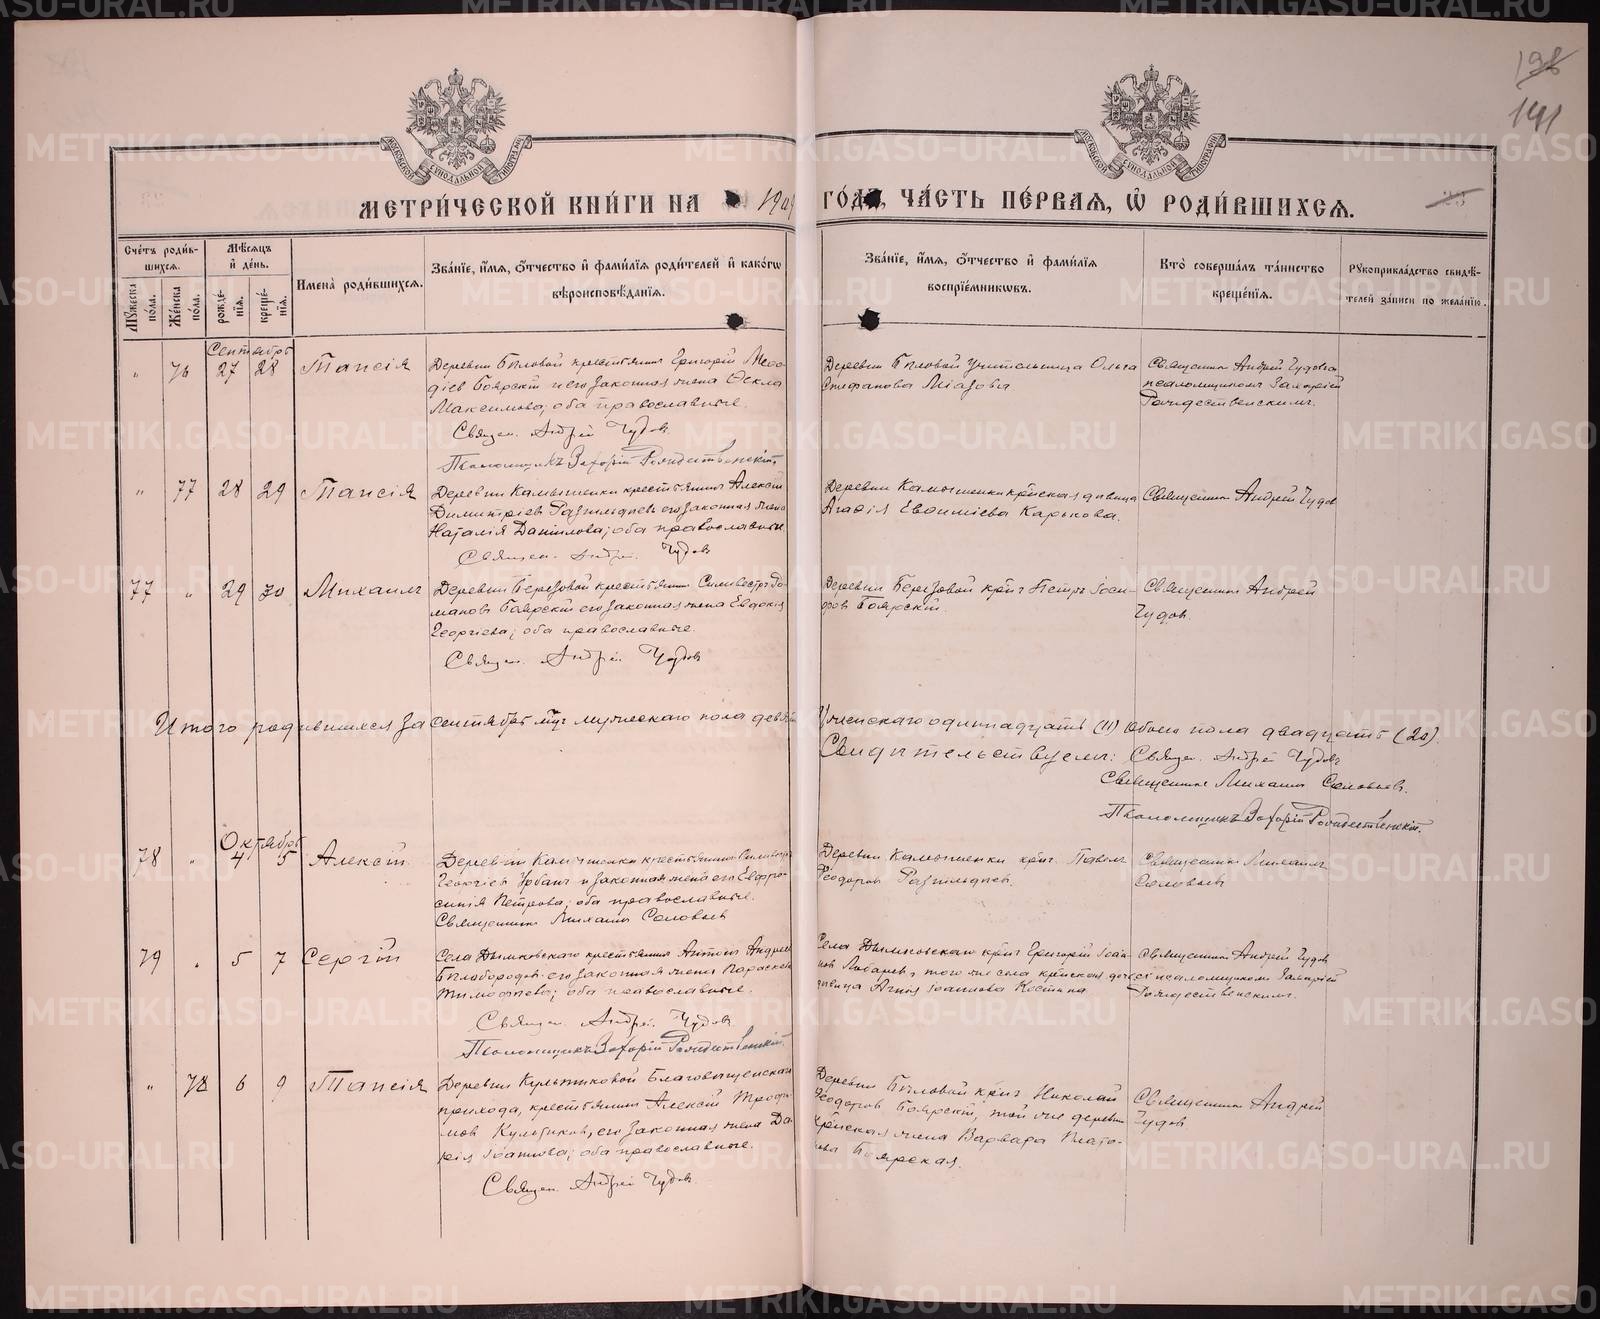 198
141
МЕТРИ́ЧЕСКОЙ КНИ́ГИ НА 190
ГО́ДЪ, ЧА́СТЬ ПЕ́РВАѦ, Ѽ РОДИ́ВШИХСѦ.
Сче́тъ роди́вшихсѧ.
Мѣ́сѧцъ и҆ де́нь.
Мꙋ́жеска по́ла.
Же́нска по́ла.
рожде́нїѧ.
креще́нїѧ.
И҆мена̀ роди́вшихсѧ.
Зва́нїе, и҆́мѧ, ѻ҆́тчество и҆ фами́лїѧ роди́телей и҆ како́гѡ вѣроисповѣ́данїѧ.
Зва́нїе, и҆́мѧ, ѻ҆́тчество и҆ фами́лїѧ воспрїе́мникѡвъ.
Кто̀ соверша́лъ та́инство креще́нїѧ.
Рꙋкоприкла́дство свидѣ́телей за́писи по жела́нїю.
Сентябрь
" 76 27 28 Таисія
Деревни Бѣловой крестьянинъ Григорій Меѳо-
діев Боярскій и его законная жена Ѳекла
Максимова, оба православные.
Священ. Андрей Чудов
Псаломщикъ Захарій Рождественскій
Деревни Бѣловой учительница Ольга
Стефанова
Священник Андрей Чудовъ
псаломщикомъ Захаріей
Рождественскимъ.
" 77 28 29 Таисія
Деревни Камышенки крестьянинъ Алексій
Димитріев его законная жена
Наталія Данилова; оба православные
Священ. Андрей Чудов
Деревни Камышенки крѣнская дѣвица
Агафія Евѳиміева Карькова.
Священник Андрей Чудов
77 " 29 30 Михаилъ
Деревни Березовой крестьянин Сильвестръ Ро-
манов Боярскій его законная жена Евдокія
Георгіева; оба православные.
Священ. Андрей Чудов
Деревни Березовой крѣн Петръ
Боярскій.
Священник Андрей
Чудов.
Итого родившихся за сентябрь м-ц мужескаго пола девять
женскаго одиннадцать (11) обоего пола двадцать (20).
Свидѣтельствуемъ: Священ. Андрей Чудов
Священник Михаилъ Соловьев.
Псаломщикъ Захарій Рождественскій.
Октябрь
78 " 4 5 Алексій
Деревни Камышенки крестьянинъ
Георгіев Урбан и законная жена его Евфро-
синія Петрова; оба православные.
Священник Михаилъ Соловьев
Деревни Камышенки крѣн. Павелъ
Ѳеодоров
Священник Михаилъ
Соловьев
79 " 5 7 Сергій
Села Дымковскаго крестьянин Антоній Андреев
Бѣлобородов его законная жена Параскева
Тимоѳеева; оба православные.
Священ. Андрей Чудов
Псаломщикъ Захарій Рождественскій.
Села Дымковскаго крѣн Григорій Іоан-
нов Лобарев, того же села крѣнская дочь
дѣвица Агнія Іоаннова Костина
Священник Андрей Чудов
с псаломщиком Захаріей
Рождественским.
" 78 6 9 Таисія
Деревни Культиковой Благовѣщенскаго
прихода, крестьянин Алексій Трофи-
мов Культиков, его законная жена Да-
рія Іоанова; оба православные.
Священ. Андрей Чудов
Деревни Бѣловой крѣн Николай
Ѳеодоров Боярскій, той же деревни
крѣнская жена Варвара Плато-
нова Боярская.
Священник Андрей
Чудов